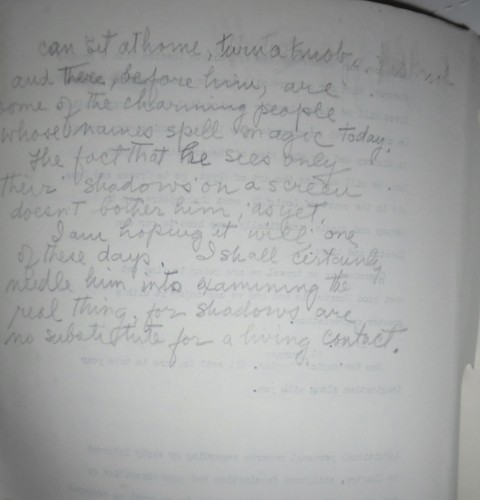 can sit at home, turn a knob,
and there, before him, are
some of the charming people
whose names spell magic today.
The fact that he sees only
their shadows on a screen
doesn't bother him, as yet.
I am hoping it will one
of these days. I shall certainly
needle him into examining the
real thing, for shadows are
no substitute for a living contact.